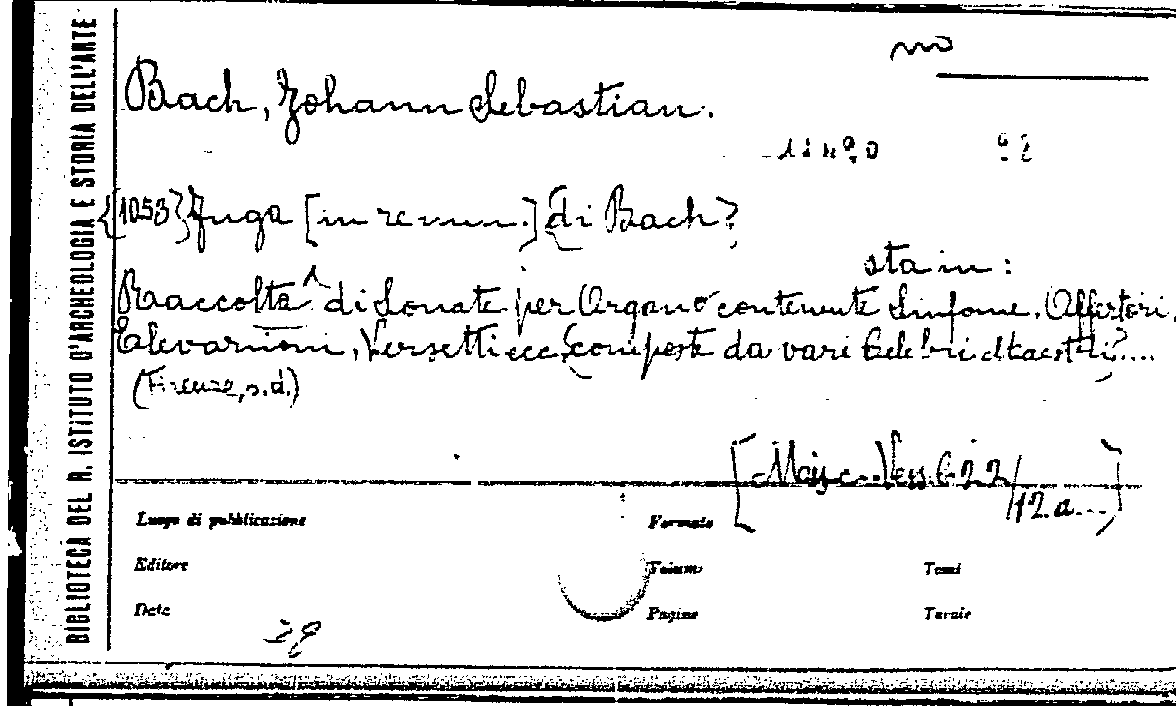 BIBLIOTECA DEL R. ISTITUTO D'ARCHEOLOGIA E STORIA DELL'ARTE
Bach, Johann Sebastian.
{[1053} Fuga [in re min.] {di Bach?
sta in:
Raccolta di Sonate per Organo contenente Sinfonie, Offertori,
Elevazioni, Versetti ecc. composte da vari Celebri Maestri....
(Firenze, s.d.)
[Misc. Vess. 622/
12.a...]
Luogo di pubblicazione
Formato
Editore
Volumi
Tomi
Data
Pagine
Tavole